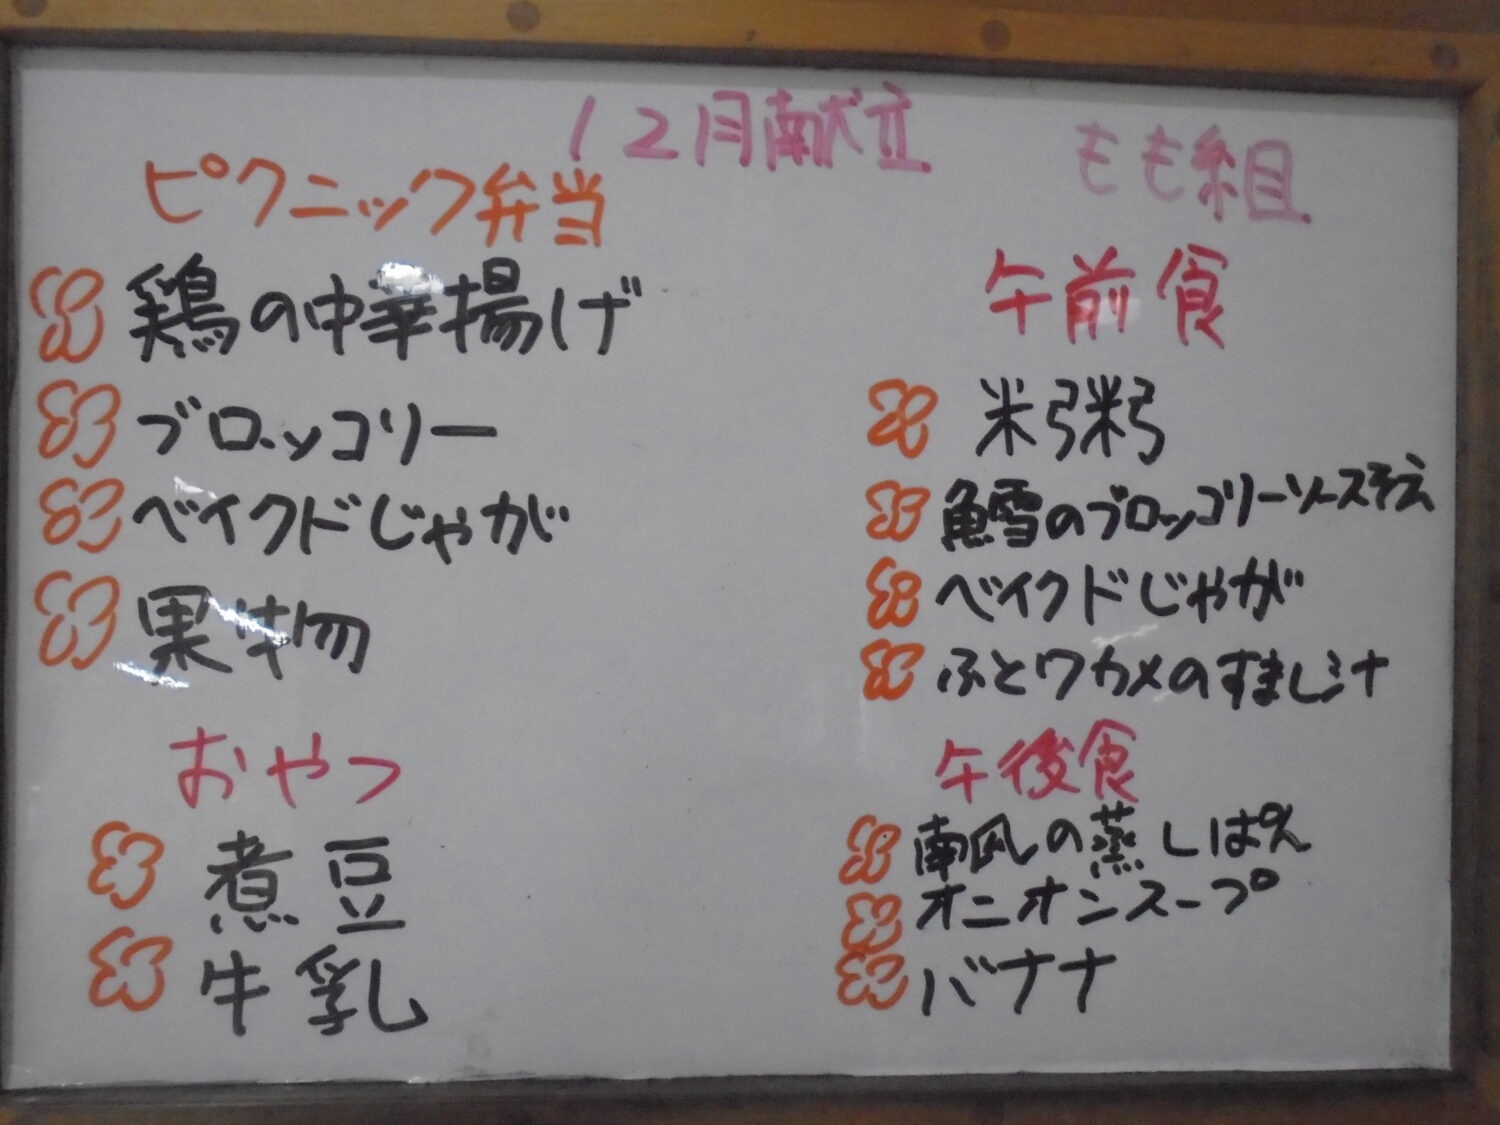 12月献立
もも組
ピクニック弁当
鶏の中華揚げ
ブロッコリー
ベイクドじゃが
果物
おやつ
煮豆
牛乳
午前食
米粥
鱈のブロッコリーソース添え
ベイクドじゃが
ふとワカメのすまし汁
午後食
南瓜の蒸しぱん
オニオンスープ
バナナ